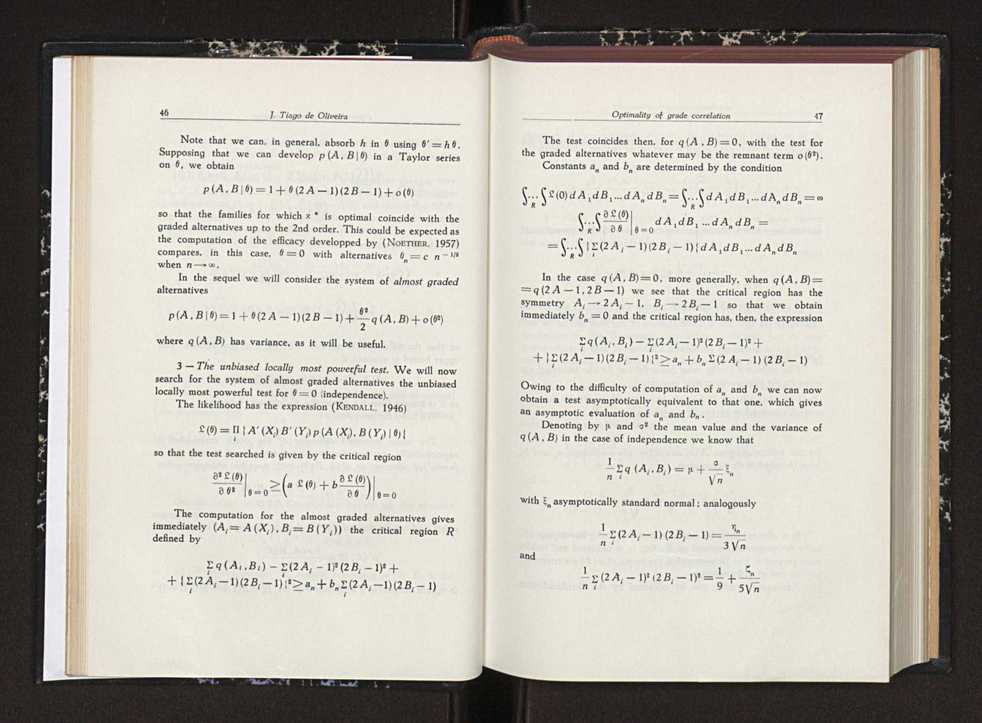 46 J. Tiago de Oliveira
Note that we can, in general, absorb h in θ using θ′ = h θ.
Supposing that we can develop p (A, B | θ) in a Taylor series
on θ, we obtain
p (A, B | θ) = 1 + θ (2 A — 1) (2 B — 1) + o (θ)
so that the families for which x * is optimal coincide with the
graded alternatives up to the 2nd order. This could be expected as
the computation of the efficacy developped by (NOETHER, 1957)
compares, in this case, θ = 0 with alternatives θₙ = c n^{-1/2}
when n → ∞.
In the sequel we will consider the system of almost graded
alternatives
p (A, B | θ) = 1 + θ (2 A — 1) (2 B — 1) + θ²/2 q (A, B) + o (θ²)
where q (A, B) has variance, as it will be useful.
3 — The unbiased locally most powerful test. We will now
search for the system of almost graded alternatives the unbiased
locally most powerful test for θ = 0 (independence).
The likelihood has the expression (KENDALL, 1946)
ℒ (θ) = Π_i { A′ (X_i) B′ (Y_i) p (A (X_i), B (Y_i) | θ) {
so that the test searched is given by the critical region
∂² ℒ (θ) / ∂ θ² |_{θ = 0} ≥ ( a ℒ (θ) + b ∂ ℒ (θ) / ∂ θ ) |_{θ = 0}
The computation for the almost graded alternatives gives
immediately (A_i = A (X_i), B_i = B (Y_i)) the critical region R
defined by
Σ_i q (A_i, B_i) — Σ_i (2 A_i - 1)² (2 B_i - 1)² +
+ { Σ_i (2 A_i — 1) (2 B_i — 1) {² ≥ a_n + b_n Σ_i (2 A_i — 1) (2 B_i — 1)
Optimality of grade correlation 47
The test coincides then, for q (A, B) = 0, with the test for
the graded alternatives whatever may be the remnant term o (θ²).
Constants a_n and b_n are determined by the condition
∫...∫_R ℒ (0) d A_1 d B_1 ... d A_n d B_n = ∫...∫_R d A_1 d B_1 ... d A_n d B_n = ∞
∫...∫_R ∂ ℒ (θ) / ∂ θ |_{θ = 0} d A_1 d B_1 ... d A_n d B_n =
= ∫...∫_R } Σ_i (2 A_i — 1) (2 B_i — 1) { d A_1 d B_1 ... d A_n d B_n
In the case q (A, B) = 0, more generally, when q (A, B) =
= q (2 A — 1, 2 B — 1) we see that the critical region has the
symmetry A_i → 2 A_i — 1, B_i → 2 B_i — 1 so that we obtain
immediately b_n = 0 and the critical region has, then, the expression
Σ_i q (A_i, B_i) — Σ_i (2 A_i — 1)² (2 B_i — 1)² +
+ } Σ_i (2 A_i — 1) (2 B_i — 1) {² ≥ a_n + b_n Σ_i (2 A_i — 1) (2 B_i — 1)
Owing to the difficulty of computation of a_n and b_n we can now
obtain a test asymptotically equivalent to that one, which gives
an asymptotic evaluation of a_n and b_n.
Denoting by μ and σ² the mean value and the variance of
q (A, B) in the case of independence we know that
1/n Σ_i q (A_i, B_i) = μ + σ/√n ξ_n
with ξ_n asymptotically standard normal; analogously
1/n Σ_i (2 A_i — 1) (2 B_i — 1) = η_n / 3 √n
and
1/n Σ_i (2 A_i — 1)² (2 B_i — 1)² = 1/9 + ζ_n / 5 √n